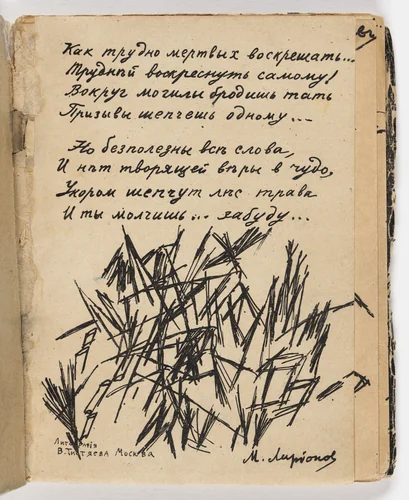 Как трудно мертвых воскрешать...
Трудней воскреснуть самому!
Вокруг могилы бродишь тать
Призывы шепчешь одному...
Но безполезны всѣ слова,
И нѣт творящей вѣры в чудо,
Укором шепчут лѣс трава
И ты молчишь... забуду...
Литография
В. Титяева Москва
М. Ларіонов